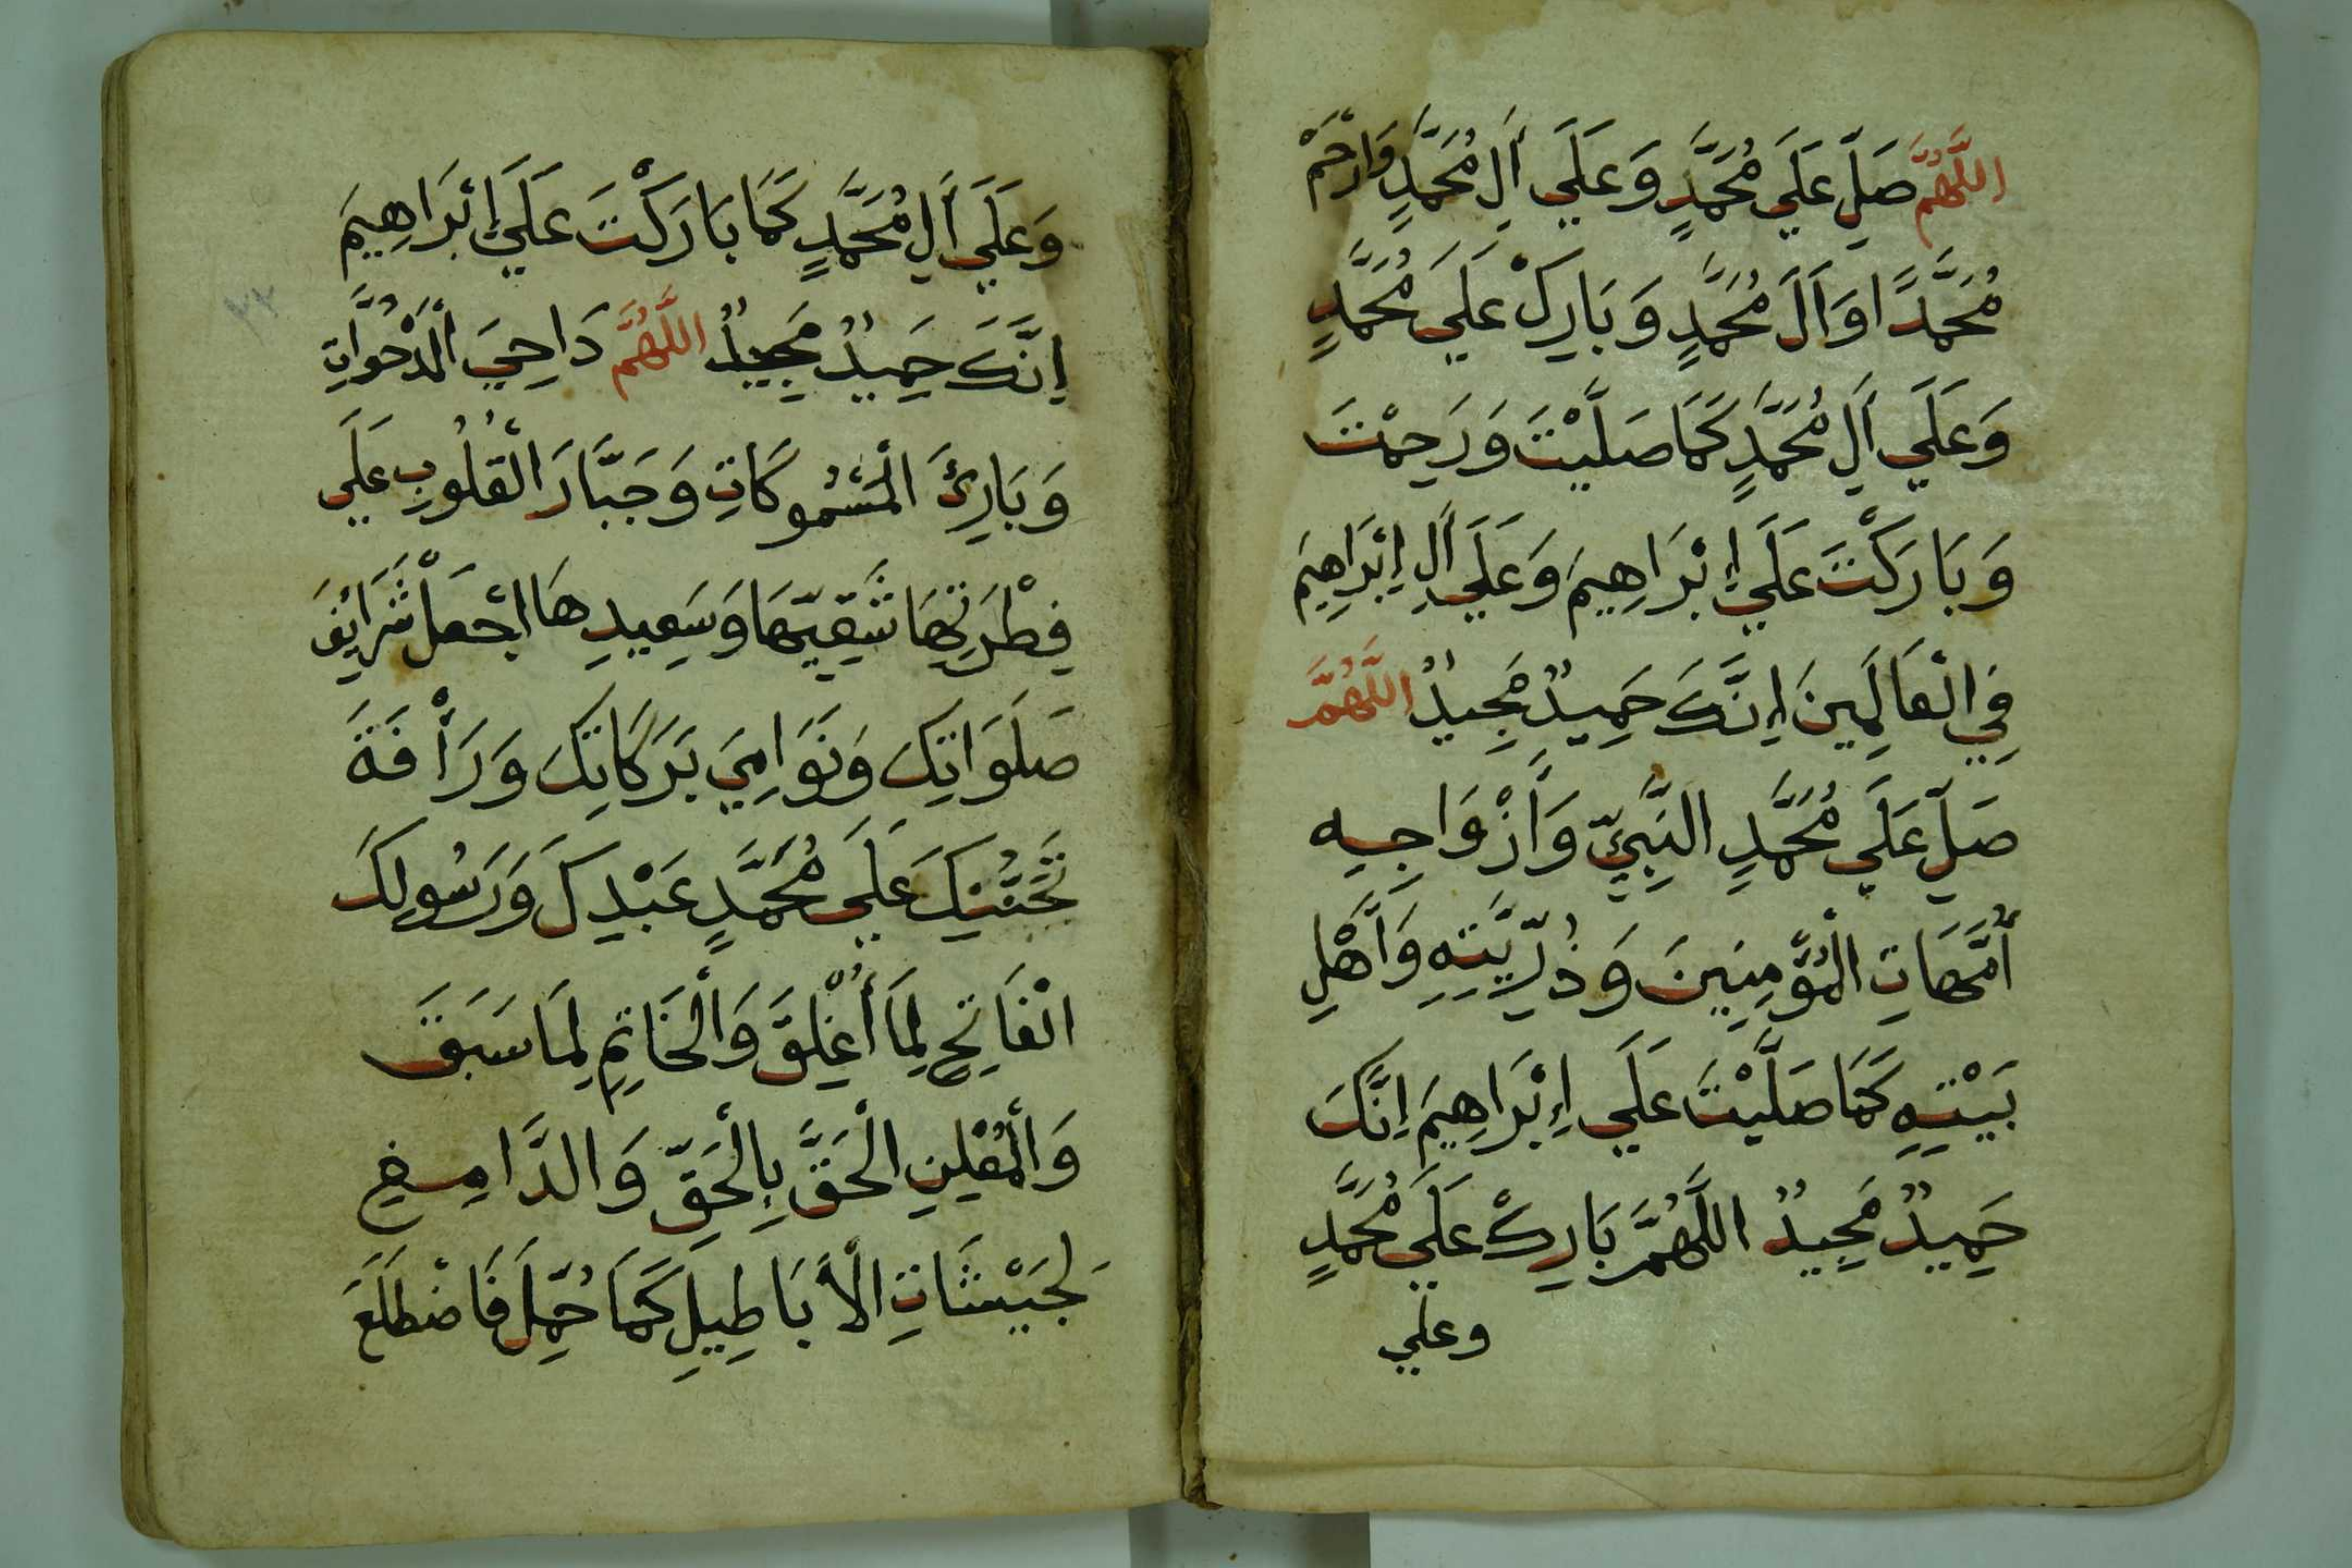 اللَّهُمَّ صَلِّ عَلَي مُحَمَّدٍ وَعَلَي أَلِ مُحَمَّدٍ وَارْحَمْ
مُحَمَّدًا وَأَلَ مُحَمَّدٍ وَبَارِكْ عَلَي مُحَمَّدٍ
وَعَلَي أَلِ مُحَمَّدٍ كَمَا صَلَّيْتَ وَرَحِمْتَ
وَبَارَكْتَ عَلَي إِبْرَاهِيمَ وَعَلَي أَلِ إِبْرَاهِيمَ
فِي الْعَالَمِينَ إِنَّكَ حَمِيدٌ مَجِيدٌ اللَّهُمَّ
صَلِّ عَلَي مُحَمَّدٍ النَّبِيِّ وَأَزْوَاجِهِ
أُمَّهَاتِ الْمُؤْمِنِينَ وَذُرِّيَّتِهِ وَأَهْلِ
بَيْتِهِ كَمَا صَلَّيْتَ عَلَي إِبْرَاهِيمَ إِنَّكَ
حَمِيدٌ مَجِيدٌ اللَّهُمَّ بَارِكْ عَلَي مُحَمَّدٍ
وعلي
وَعَلَي أَلِ مُحَمَّدٍ كَمَا بَارَكْتَ عَلَي إِبْرَاهِيمَ
إِنَّكَ حَمِيدٌ مَجِيدٌ اللَّهُمَّ دَاحِيَ الْمَدْحُوَّاتِ
وَبَارِئَ الْمَسْمُوكَاتِ وَجَبَّارَ الْقُلُوبِ عَلَي
فِطْرَتِهَا شَقِيِّهَا وَسَعِيدِهَا اجْعَلْ شَرَائِفَ
صَلَوَاتِكَ وَنَوَامِيَ بَرَكَاتِكَ وَرَأْفَةَ
تَحَنُّنِكَ عَلَي مُحَمَّدٍ عَبْدِكَ وَرَسُولِكَ
الْفَاتِحِ لِمَا أُغْلِقَ وَالْخَاتِمِ لِمَا سَبَقَ
وَالْمُعْلِنِ الْحَقَّ بِالْحَقِّ وَالدَّامِغِ
لِجَيْشَاتِ الْأَبَاطِيلِ كَمَا حُمِّلَ فَاضْطَلَعَ